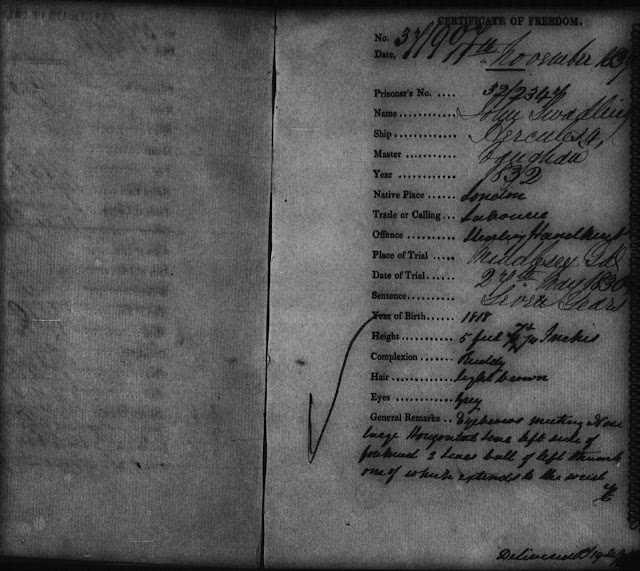 CERTIFICATE OF FREEDOM.
No. 37/1907
Date, 7th November 1837
Prisoner's No. .... 32/2347
Name ........... John Swadling
Ship ............. Hercules
Master ..........
Year ............. 1832
Native Place ...... London
Trade or Calling ... Labourer
Offence ......... Stealing Handkerf
Place of Trial .... Middlesex
Date of Trial ...... 27th May 1830
Sentence .......... Seven Years
Year of Birth ...... 1818
Height ............ 5 feet Inches
Complexion ...... Ruddy
Hair ............. light brown
Eyes ............. Grey
General Remarks .. Eyebrows meeting
large Horizontal scar left side of
forehead 2 scars ball of left thumb
one of which extends to the wrist
Delivered